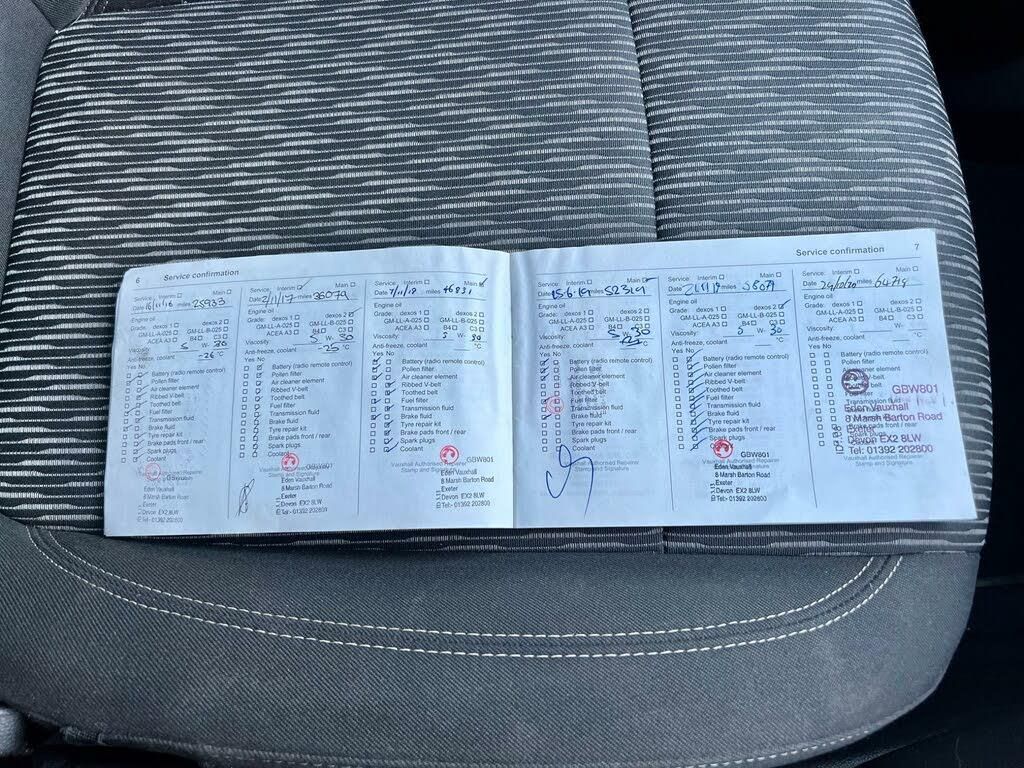 6 Service confirmation
Service: Interim □ Main □
Date 16/11/16 miles 25933
Engine oil
Grade: dexos 1 □ dexos 2 □
GM-LL-A-025 □ GM-LL-B-025 □
ACEA A3 □ B4 □ C3 □
Viscosity: 5 W- 30
Anti-freeze, coolant -26 °C
Yes No
Battery (radio remote control)
Pollen filter
Air cleaner element
Ribbed V-belt
Toothed belt
Fuel filter
Transmission fluid
Brake fluid
Tyre repair kit
Brake pads front / rear
Spark plugs
Coolant
Eden Vauxhall
8 Marsh Barton Road
Exeter
Devon EX2 8LW
Tel:- 01392 202800
Service: Interim □ Main □
Date 2/11/17 miles 36079
Engine oil
Grade: dexos 1 □ dexos 2 □
GM-LL-A-025 □ GM-LL-B-025 □
ACEA A3 □ B4 □ C3 □
Viscosity: 5 W- 30
Anti-freeze, coolant -25 °C
Yes No
Battery (radio remote control)
Pollen filter
Air cleaner element
Ribbed V-belt
Toothed belt
Fuel filter
Transmission fluid
Brake fluid
Tyre repair kit
Brake pads front / rear
Spark plugs
Coolant
Vauxhall Authorised Repairer
Stamp and Signature
Eden Vauxhall
8 Marsh Barton Road
Exeter
Devon EX2 8LW
Tel:- 01392 202800
Service: Interim □ Main □
Date miles 46831
Engine oil
Grade: dexos 1 □ dexos 2 □
GM-LL-A-025 □ GM-LL-B-025 □
ACEA A3 □ B4 □ C3 □
Viscosity: 5 W- 30
Anti-freeze, coolant °C
Yes No
Battery (radio remote control)
Pollen filter
Air cleaner element
Ribbed V-belt
Toothed belt
Fuel filter
Transmission fluid
Brake fluid
Tyre repair kit
Brake pads front / rear
Spark plugs
Coolant
GBW801
Vauxhall Authorised Repairer
Stamp and Signature
Eden Vauxhall
8 Marsh Barton Road
Exeter
Devon EX2 8LW
Tel:- 01392 202800
Service confirmation 7
Service: Interim □ Main □
Date 15.6.19 miles 52319
Engine oil
Grade: dexos 1 □ dexos 2 □
GM-LL-A-025 □ GM-LL-B-025 □
ACEA A3 □ B4 □ C3 □
Viscosity: 5 W- 30
Anti-freeze, coolant °C
Yes No
Battery (radio remote control)
Pollen filter
Air cleaner element
Ribbed V-belt
Toothed belt
Fuel filter
Transmission fluid
Brake fluid
Tyre repair kit
Brake pads front / rear
Spark plugs
Coolant
Vauxhall Authorised Repairer
Stamp and Signature
Service: Interim □ Main □
Date miles
Engine oil
Grade: dexos 1 □ dexos 2 □
GM-LL-A-025 □ GM-LL-B-025 □
ACEA A3 □ B4 □ C3 □
Viscosity: 5 W- 30
Anti-freeze, coolant °C
Yes No
Battery (radio remote control)
Pollen filter
Air cleaner element
Ribbed V-belt
Toothed belt
Fuel filter
Transmission fluid
Brake fluid
Tyre repair kit
Brake pads front / rear
Spark plugs
Coolant
GBW801
Vauxhall Authorised Repairer
Stamp and Signature
Eden Vauxhall
8 Marsh Barton Road
Exeter
Devon EX2 8LW
Tel:- 01392 202800
Service: Interim □ Main □
Date 29/10/20 miles 64719
Engine oil
Grade: dexos 1 □ dexos 2 □
GM-LL-A-025 □ GM-LL-B-025 □
ACEA A3 □ B4 □ C3 □
Viscosity: W-
Anti-freeze, coolant °C
Yes No
Battery (radio remote control)
Pollen filter
element
V-belt
belt
GBW801
Transmission fluid
Eden Vauxhall
8 Marsh Barton Road
Exeter
Devon EX2 8LW
Tel: 01392 202800
Vauxhall Authorised Repairer
Stamp and Signature